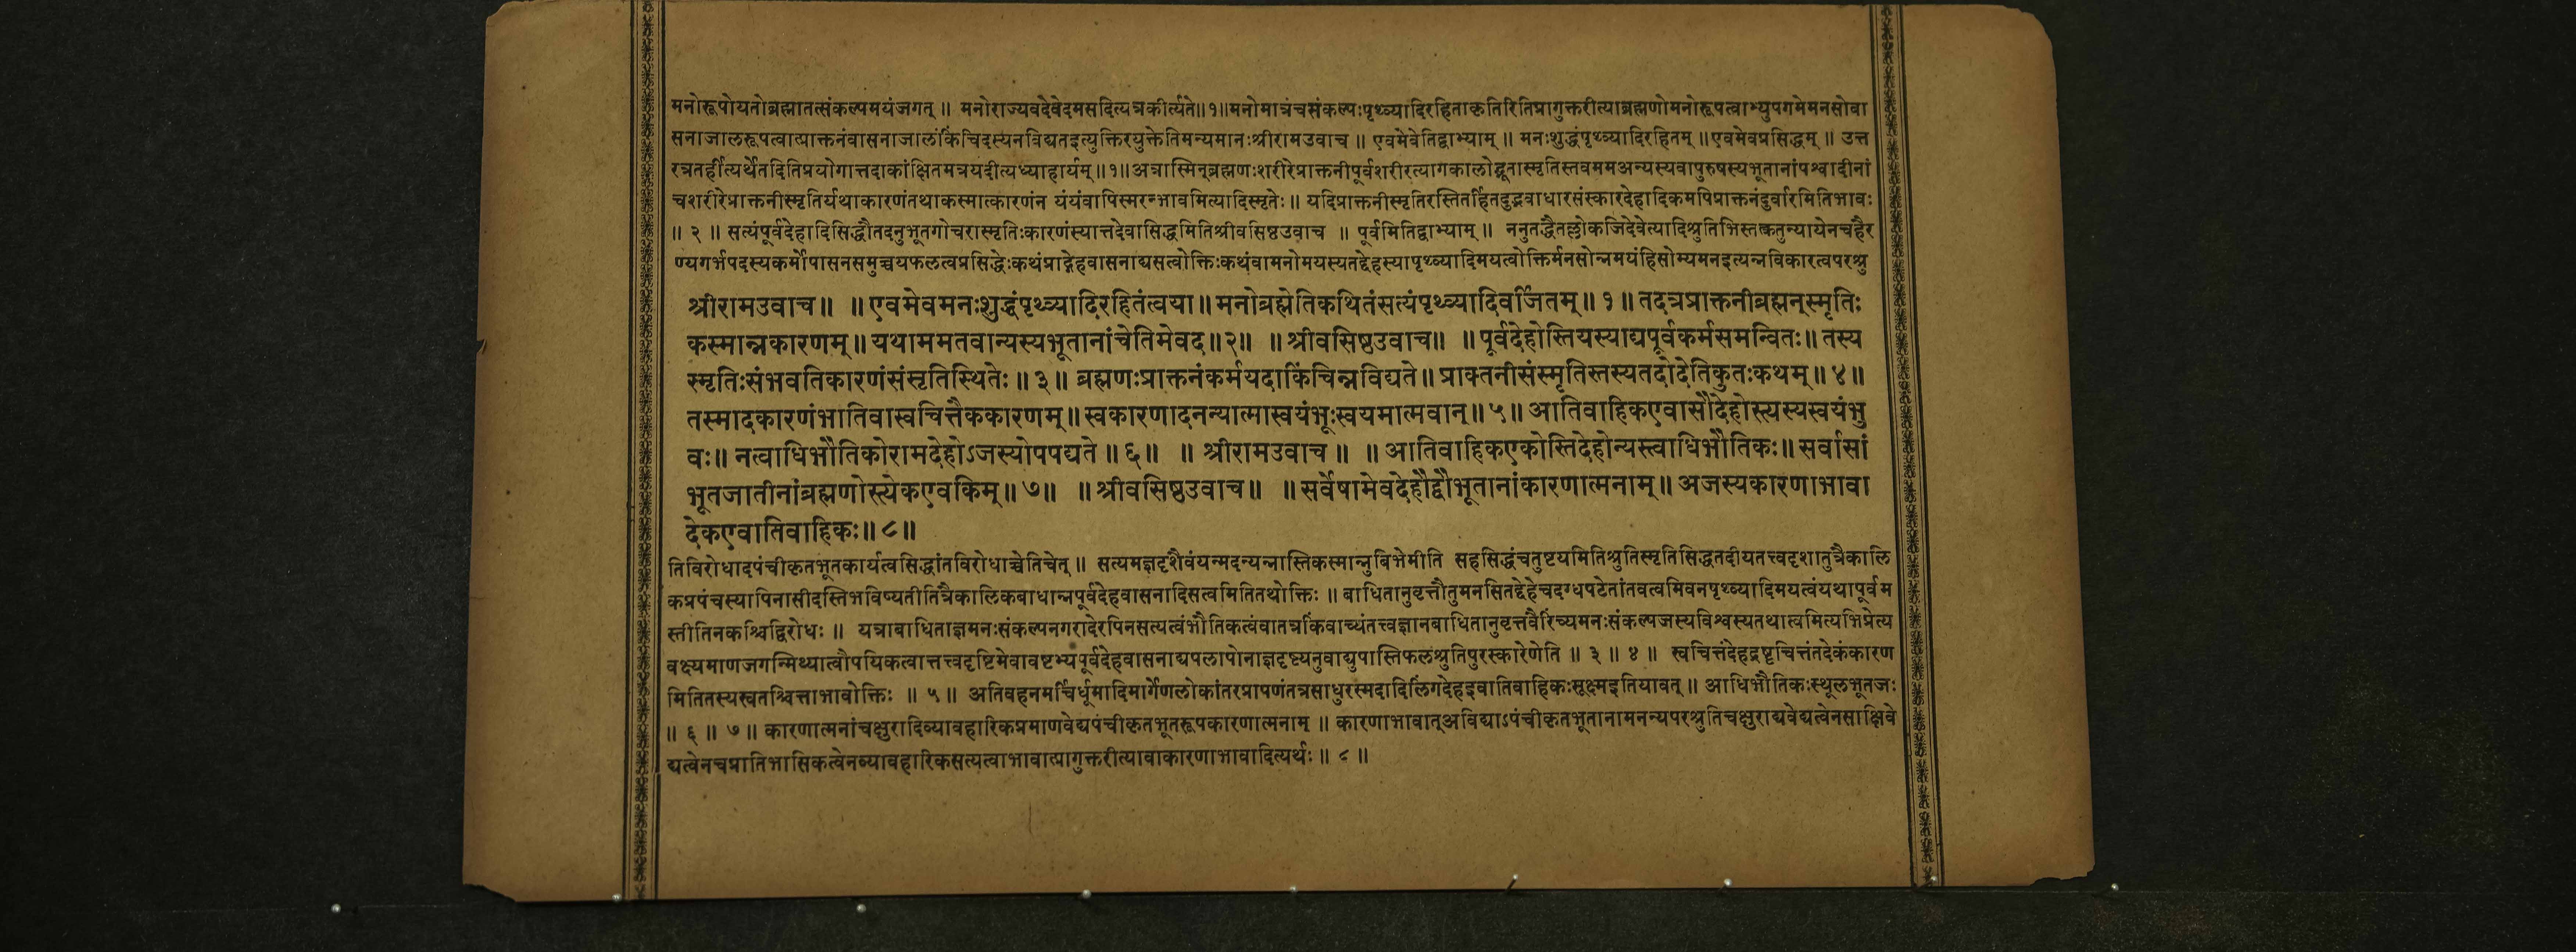 मनोरूपोयतोब्रह्मातत्संकल्पमयंजगत् ॥ मनोराज्यवदेवेदमसदित्यत्रकीर्त्यते॥१॥मनोमात्रंचसंकल्पःपृथ्व्यादिरहिताकृतिरितिप्रागुक्तरीत्याब्रह्मणोमनोरूपत्वाभ्युपगमेमनसोवा
सनाजालरूपत्वात्प्राक्तनंवासनाजालंकिंचिदस्यनविद्यतइत्युक्तिरयुक्तेतिमन्यमानःश्रीरामउवाच ॥ एवमेवेतिद्वाभ्याम् ॥ मनःशुद्धंपृथ्व्यादिरहितम् ॥एवमेवप्रसिद्धम् ॥ उत्त
रत्रतर्हीत्यर्थेतदितिप्रयोगात्तदाकांक्षितमत्रयदीत्यध्याहार्यम् ॥१॥अत्रास्मिन्ब्रह्मणःशरीरेप्राक्तनीपूर्वशरीरत्यागकालोद्भूतास्मृतिस्तवममअन्यस्यवापुरुषस्यभूतानांपश्वादीनां
चशरीरेप्राक्तनीस्मृतिर्यथाकारणंतथाकस्मात्कारणंन यंयंवापिस्मरन्भावमित्यादिस्मृतेः ॥ यदिप्राक्तनीस्मृतिरस्तितर्हितदुद्भवाधारसंस्कारदेहादिकमपिप्राक्तनंदुर्वारमितिभावः
॥ २ ॥ सत्यंपूर्वदेहादिसिद्धौतदनुभूतगोचरास्मृतिःकारणंस्यात्तदेवासिद्धमितिश्रीवसिष्ठउवाच ॥ पूर्वमितिद्वाभ्याम् ॥ ननुतद्धैतल्लोकजिदेवेत्यादिश्रुतिभिस्तत्क्रतुन्यायेनचहैर
ण्यगर्भपदस्यकर्मोपासनसमुच्चयफलत्वप्रसिद्धेःकथंप्राग्देहवासनाद्यसत्वोक्तिःकथंवामनोमयस्यतद्देहस्यापृथ्व्यादिमयत्वोक्तिर्मनसोन्नमयंहिसोम्यमनइत्यन्नविकारत्वपरश्रु
श्रीरामउवाच॥ ॥एवमेवमनःशुद्धंपृथ्व्यादिरहितंत्वया॥मनोब्रह्मेतिकथितंसत्यंपृथ्व्यादिवर्जितम्॥१॥तदत्रप्राक्तनीब्रह्मन्स्मृतिः
कस्मान्नकारणम्॥यथाममतवान्यस्यभूतानांचेतिमेवद॥२॥ ॥श्रीवसिष्ठउवाच॥ ॥पूर्वदेहोस्तियस्याद्यपूर्वकर्मसमन्वितः॥तस्य
स्मृतिःसंभवतिकारणंसंसृतिस्थितेः॥३॥ ब्रह्मणःप्राक्तनंकर्मयदाकिंचिन्नविद्यते॥प्राक्तनीसंस्मृतिस्तस्यतदोदेतिकुतःकथम्॥४॥
तस्मादकारणंभातिवास्वचित्तैककारणम्॥स्वकारणादनन्यात्मास्वयंभूःस्वयमात्मवान्॥५॥ आतिवाहिकएवासौदेहोस्त्यस्यस्वयंभु
वः॥ नत्वाधिभौतिकोरामदेहोऽजस्योपपद्यते॥६॥ ॥ श्रीरामउवाच ॥ ॥आतिवाहिकएकोस्तिदेहोन्यस्त्वाधिभौतिकः॥सर्वासां
भूतजातीनांब्रह्मणोस्त्येकएवकिम्॥७॥ ॥श्रीवसिष्ठउवाच॥ ॥सर्वेषामेवदेहौद्वौभूतानांकारणात्मनाम्॥अजस्यकारणाभावा
देकएवातिवाहिकः॥८॥
तिविरोधादपंचीकृतभूतकार्यत्वसिद्धांतविरोधाच्चेतिचेत् ॥ सत्यमज्ञदृशैवंयन्मदन्यन्नास्तिकस्मान्नुबिभेमीति सहसिद्धंचतुष्टयमितिश्रुतिस्मृतिसिद्धतदीयतत्त्वदृशातुत्रैकालि
कप्रपंचस्यापिनासीदस्तिभविष्यतीतित्रैकालिकबाधान्नपूर्वदेहवासनादिसत्वमितितथोक्तिः ॥ बाधितानुवृत्तौतुमनसितद्देहेचदग्धपटेतांतवत्वमिवनपृथ्व्यादिमयत्वंयथापूर्वम
स्तीतिनकश्चिद्विरोधः ॥ यत्राबाधिताज्ञमनःसंकल्पनगरादेरपिनसत्यत्वंभौतिकत्वंवातत्रकिंवाच्यंतत्त्वज्ञानबाधितानुवृत्तवैरिंच्यमनःसंकल्पजस्यविश्वस्यतथात्वमित्यभिप्रेत्य
वक्ष्यमाणजगन्मिथ्यात्वौपयिकत्वात्तत्त्वदृष्टिमेवावष्टभ्यपूर्वदेहवासनाद्यपलापोनाज्ञदृष्ट्यनुवाद्युपास्तिफलश्रुतिपुरस्कारेणेति ॥ ३ ॥ ४ ॥ स्वचित्तंदेहद्रष्टृचित्तंतदेकंकारण
मितितस्यस्वतश्चित्ताभावोक्तिः ॥ ५ ॥ अतिवहनमर्चिर्धूमादिमार्गेणलोकांतरप्रापणंतत्रसाधुरस्मदादिलिंगदेहइवातिवाहिकःसूक्ष्मइतियावत् ॥ आधिभौतिकःस्थूलभूतजः
॥ ६ ॥ ७ ॥ कारणात्मनांचक्षुरादिव्यावहारिकप्रमाणवेद्यपंचीकृतभूतरूपकारणात्मनाम् ॥ कारणाभावात्अविद्याऽपंचीकृतभूतानामनन्यपरश्रुतिचक्षुराद्यवेद्यत्वेनसाक्षिवे
द्यत्वेनचप्रातिभासिकत्वेनव्यावहारिकसत्यत्वाभावात्प्रागुक्तरीत्यावाकारणाभावादित्यर्थः ॥ ८ ॥